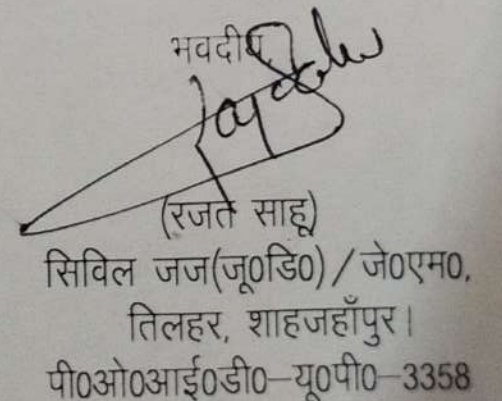 भवदीय,
(रजत साहू)
सिविल जज(जू0डि0)/जे0एम0,
तिलहर, शाहजहाँपुर।
पी0ओ0आई0डी0–यू0पी0–3358